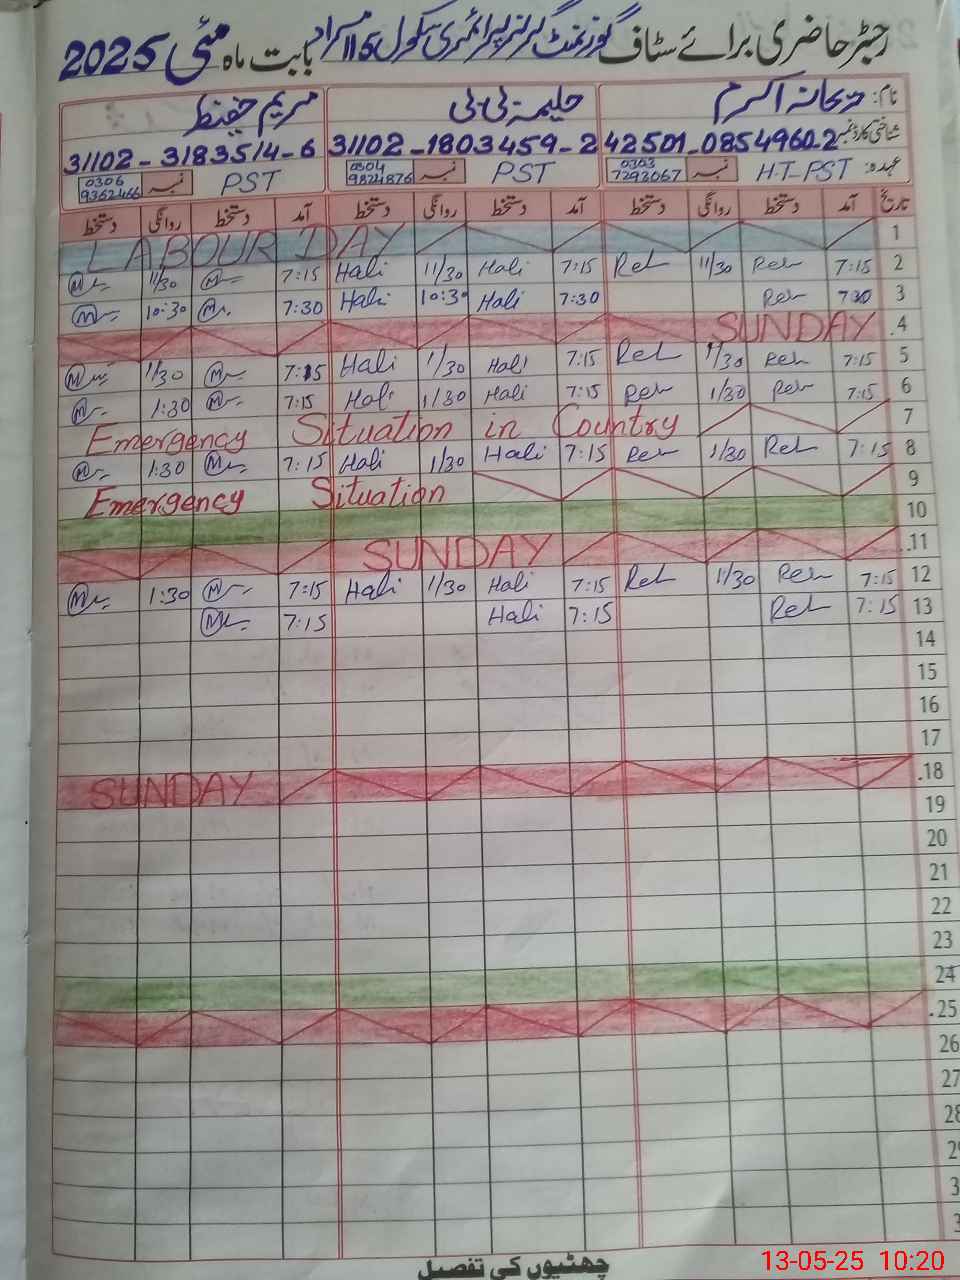 رجسٹر حاضری برائے سٹاف گورنمنٹ گرلز پرائمری سکول 116 مراد بابت ماہ مئی 2025
نام: ریحانہ اکرم حلیمہ بی بی مریم حفیظ
شناختی کارڈ نمبر 42501-0854960-2 31102-1803459-2 31102-3183514-6
عہدہ: H.T-PST نمبر 0303 7293067 PST نمبر 0304 9824876 PST نمبر 0306 9362466
تاریخ آمد دستخط روانگی دستخط آمد دستخط روانگی دستخط آمد دستخط روانگی دستخط
LABOUR DAY 1
11/30 7:15 Hali 11/30 Hali 7:15 Reh 11/30 Reh 7:15 2
10:30 7:30 Hali 10:30 Hali 7:30 Reh 7 30 3
SUNDAY .4
1/30 7:15 Hali 1/30 Hali 7:15 Reh 1/30 Reh 7:15 5
1:30 7:15 Hali 1/30 Hali 7:15 Reh 1/30 Reh 7:15 6
Emergency Situation in Country 7
1:30 7:15 Hali 1/30 Hali 7:15 Reh 1/30 Reh 7:15 8
Emergency Situation 9
10
SUNDAY .11
1:30 7:15 Hali 1/30 Hali 7:15 Reh 11/30 Reh 7:15 12
7:15 Hali 7:15 Reh 7:15 13
14
15
16
17
SUNDAY .18
19
20
21
22
23
24
.25
26
27
28
چھٹیوں کی تفصیل
13-05-25 10:20